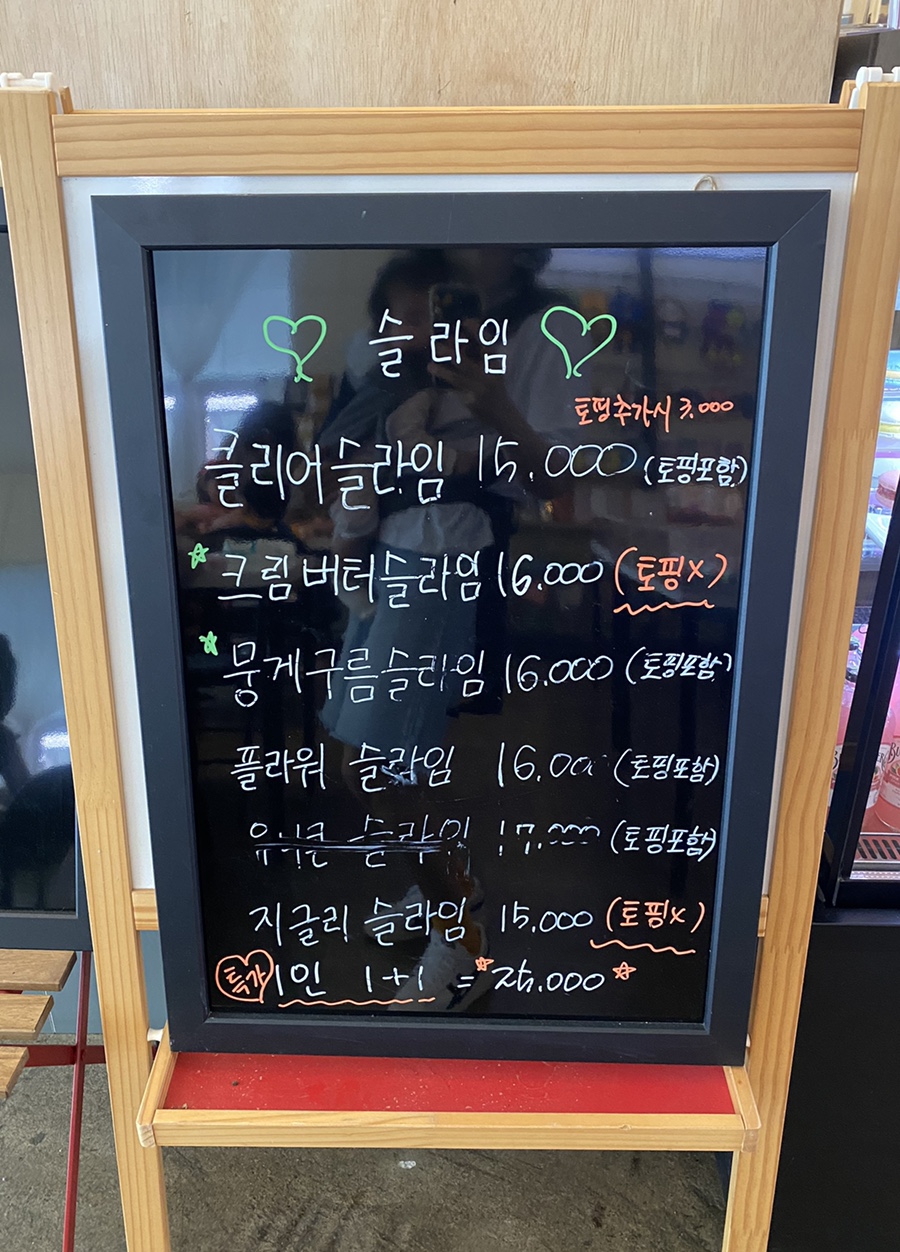 슬라임
토핑추가시 3.000
클리어슬라임 15.000 (토핑포함)
크림버터슬라임 16.000 (토핑X)
뭉게구름슬라임 16.000 (토핑포함)
플라워 슬라임 16.000 (토핑포함)
유니콘 슬라임 17.000 (토핑포함)
지글리 슬라임 15.000 (토핑X)
특가 1인 1+1 = 25.000